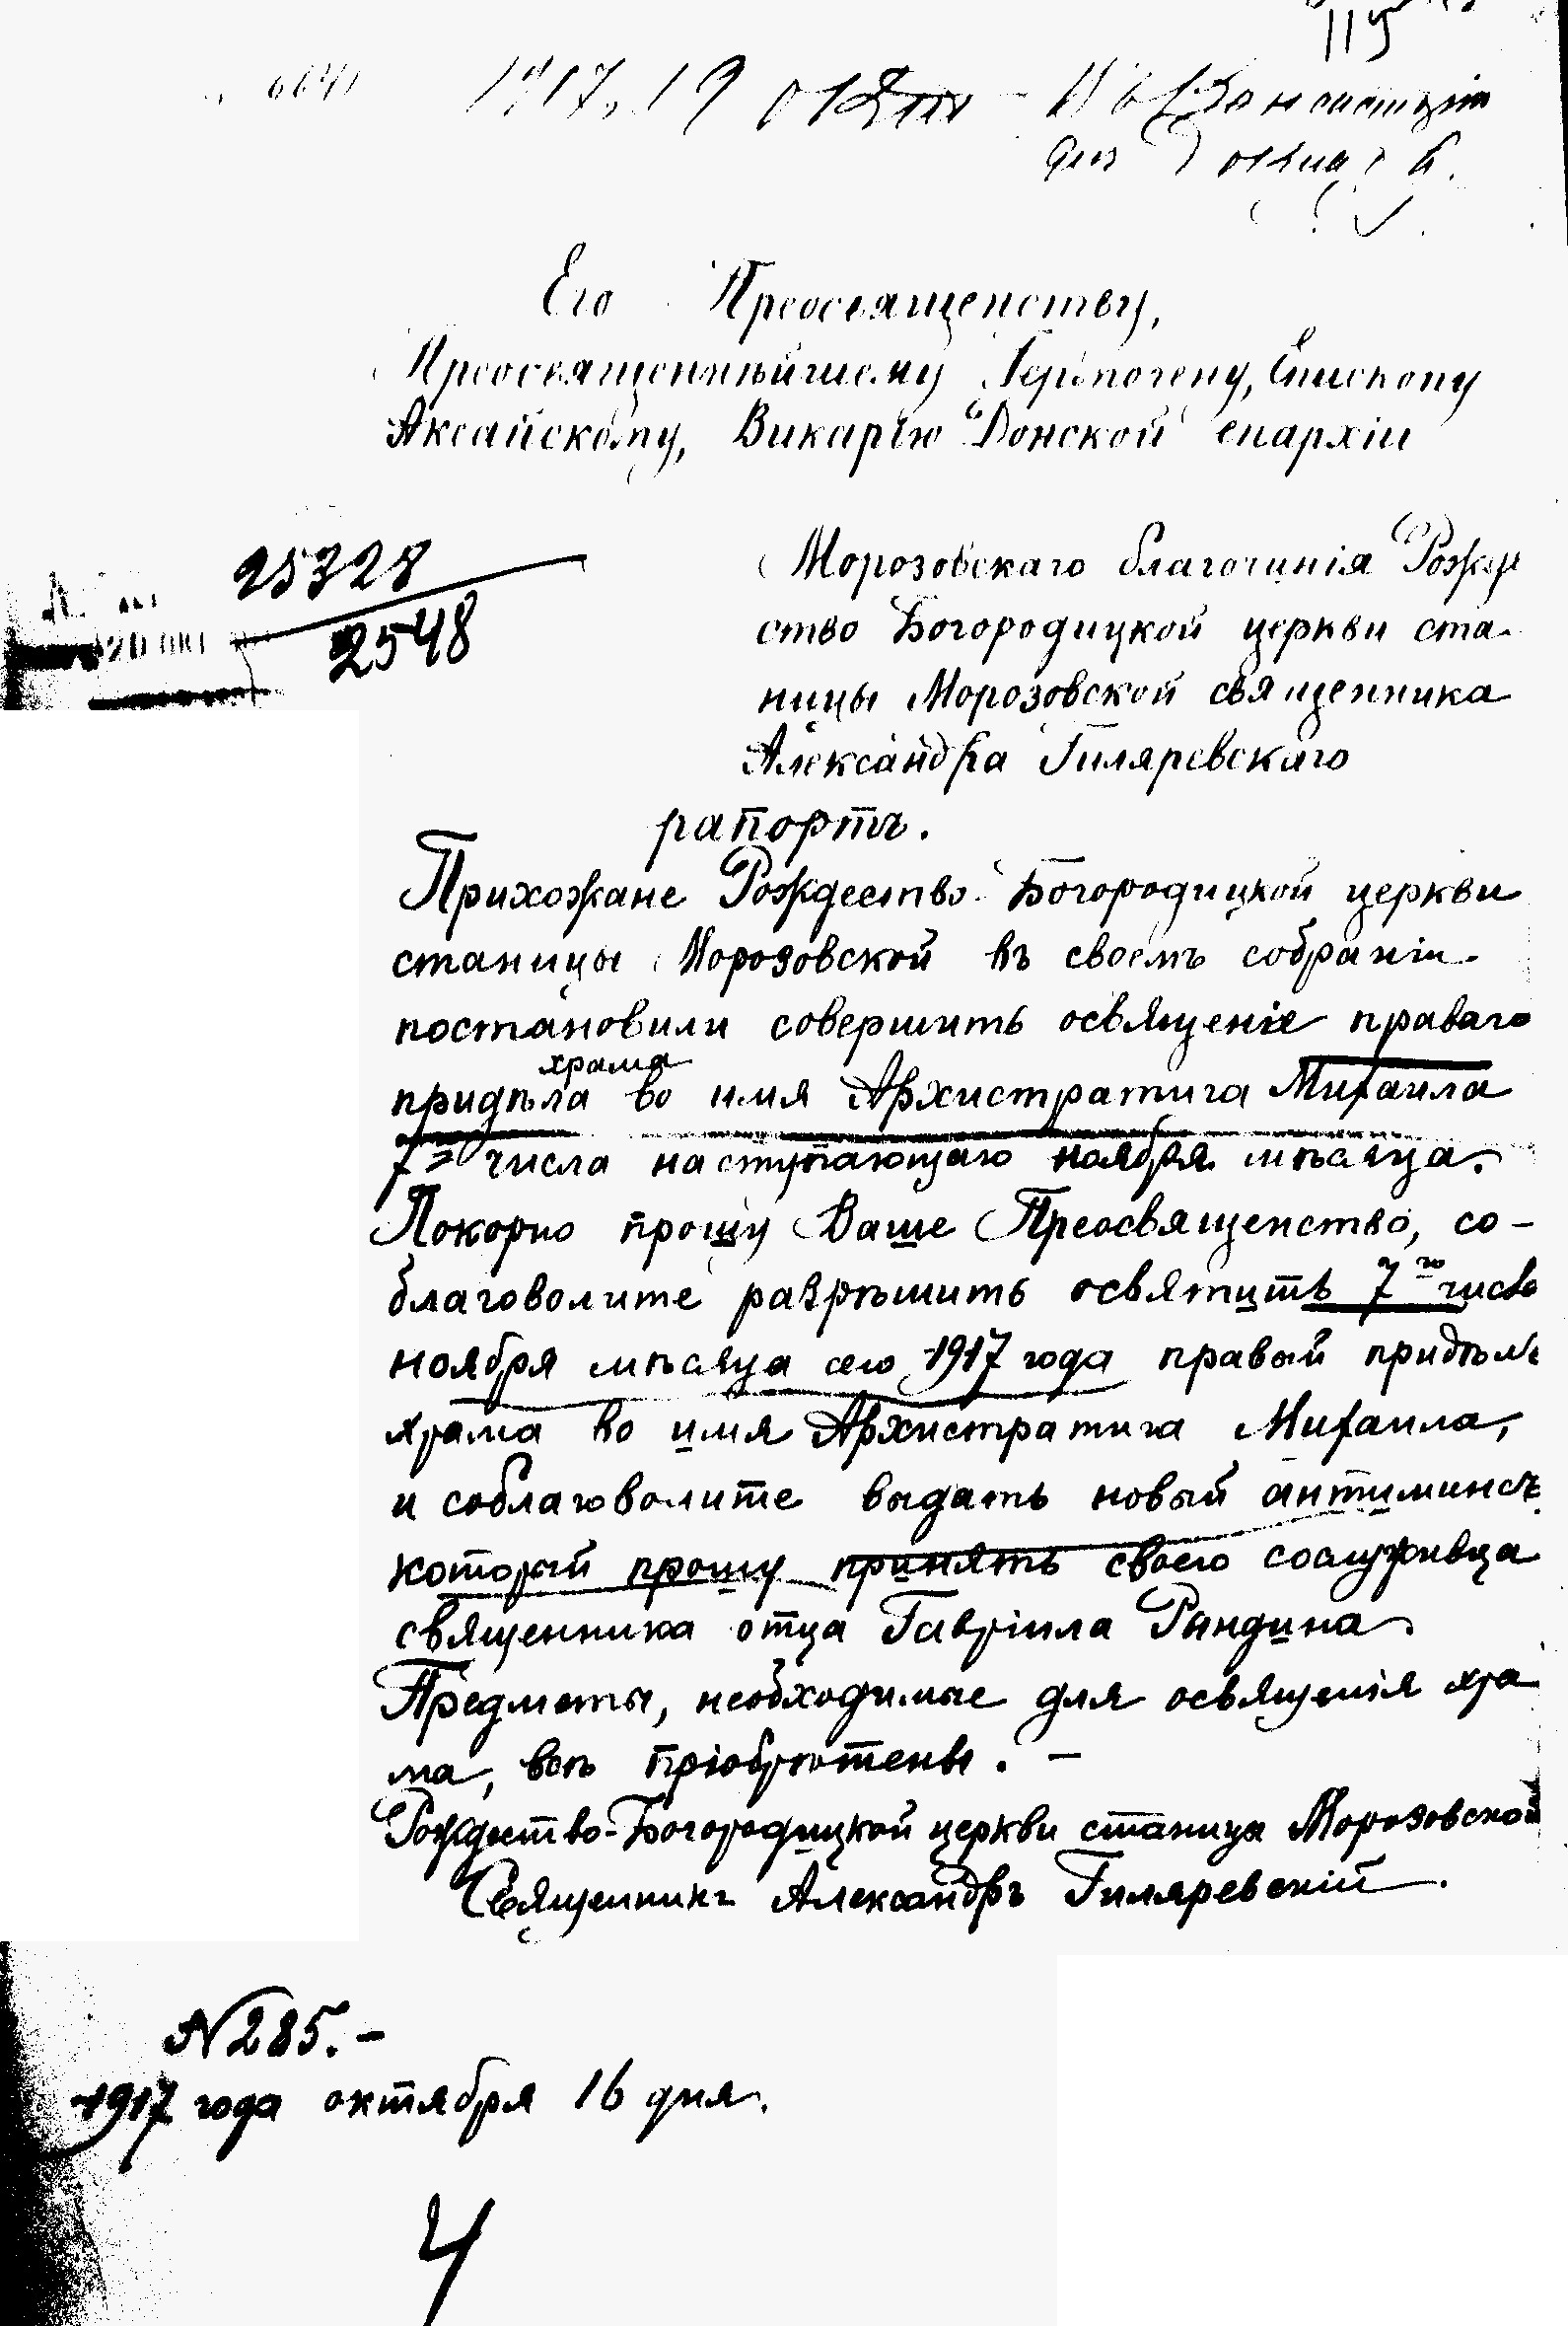 115
1917, 19 окт
Его Преосвященству,
Преосвященнѣйшему Гермогену, Епископу
Аксайскому, Викарію Донской епархіи
25328
2548
20 окт
Морозовскаго благочинія Рожде
ство Богородицкой церкви ста-
ницы Морозовской священника
Александра Гиляревскаго
рапортъ.
Прихожане Рождество-Богородицкой церкви
станицы Морозовской въ своемъ собраніи
постановили совершить освященіе праваго
придѣла храма во имя Архистратига Михаила
7го числа наступающаго ноября мѣсяца.
Покорно прошу Ваше Преосвященство, со-
благоволите разрѣшить освятить 7го числа
ноября мѣсяца сего 1917 года правый придѣлъ
храма во имя Архистратига Михаила,
и соблаговолите выдать новый антиминсъ
который прошу принять своего сослуживца
священника отца Гавріила Рындина
Предметы, необходимые для освященія хра
ма, всѣ пріобрѣтены. —
Рождество-Богородицкой церкви станицы Морозовской
Священникъ Александръ Гиляревскій.
N 285.-
1917 года октября 16 дня.